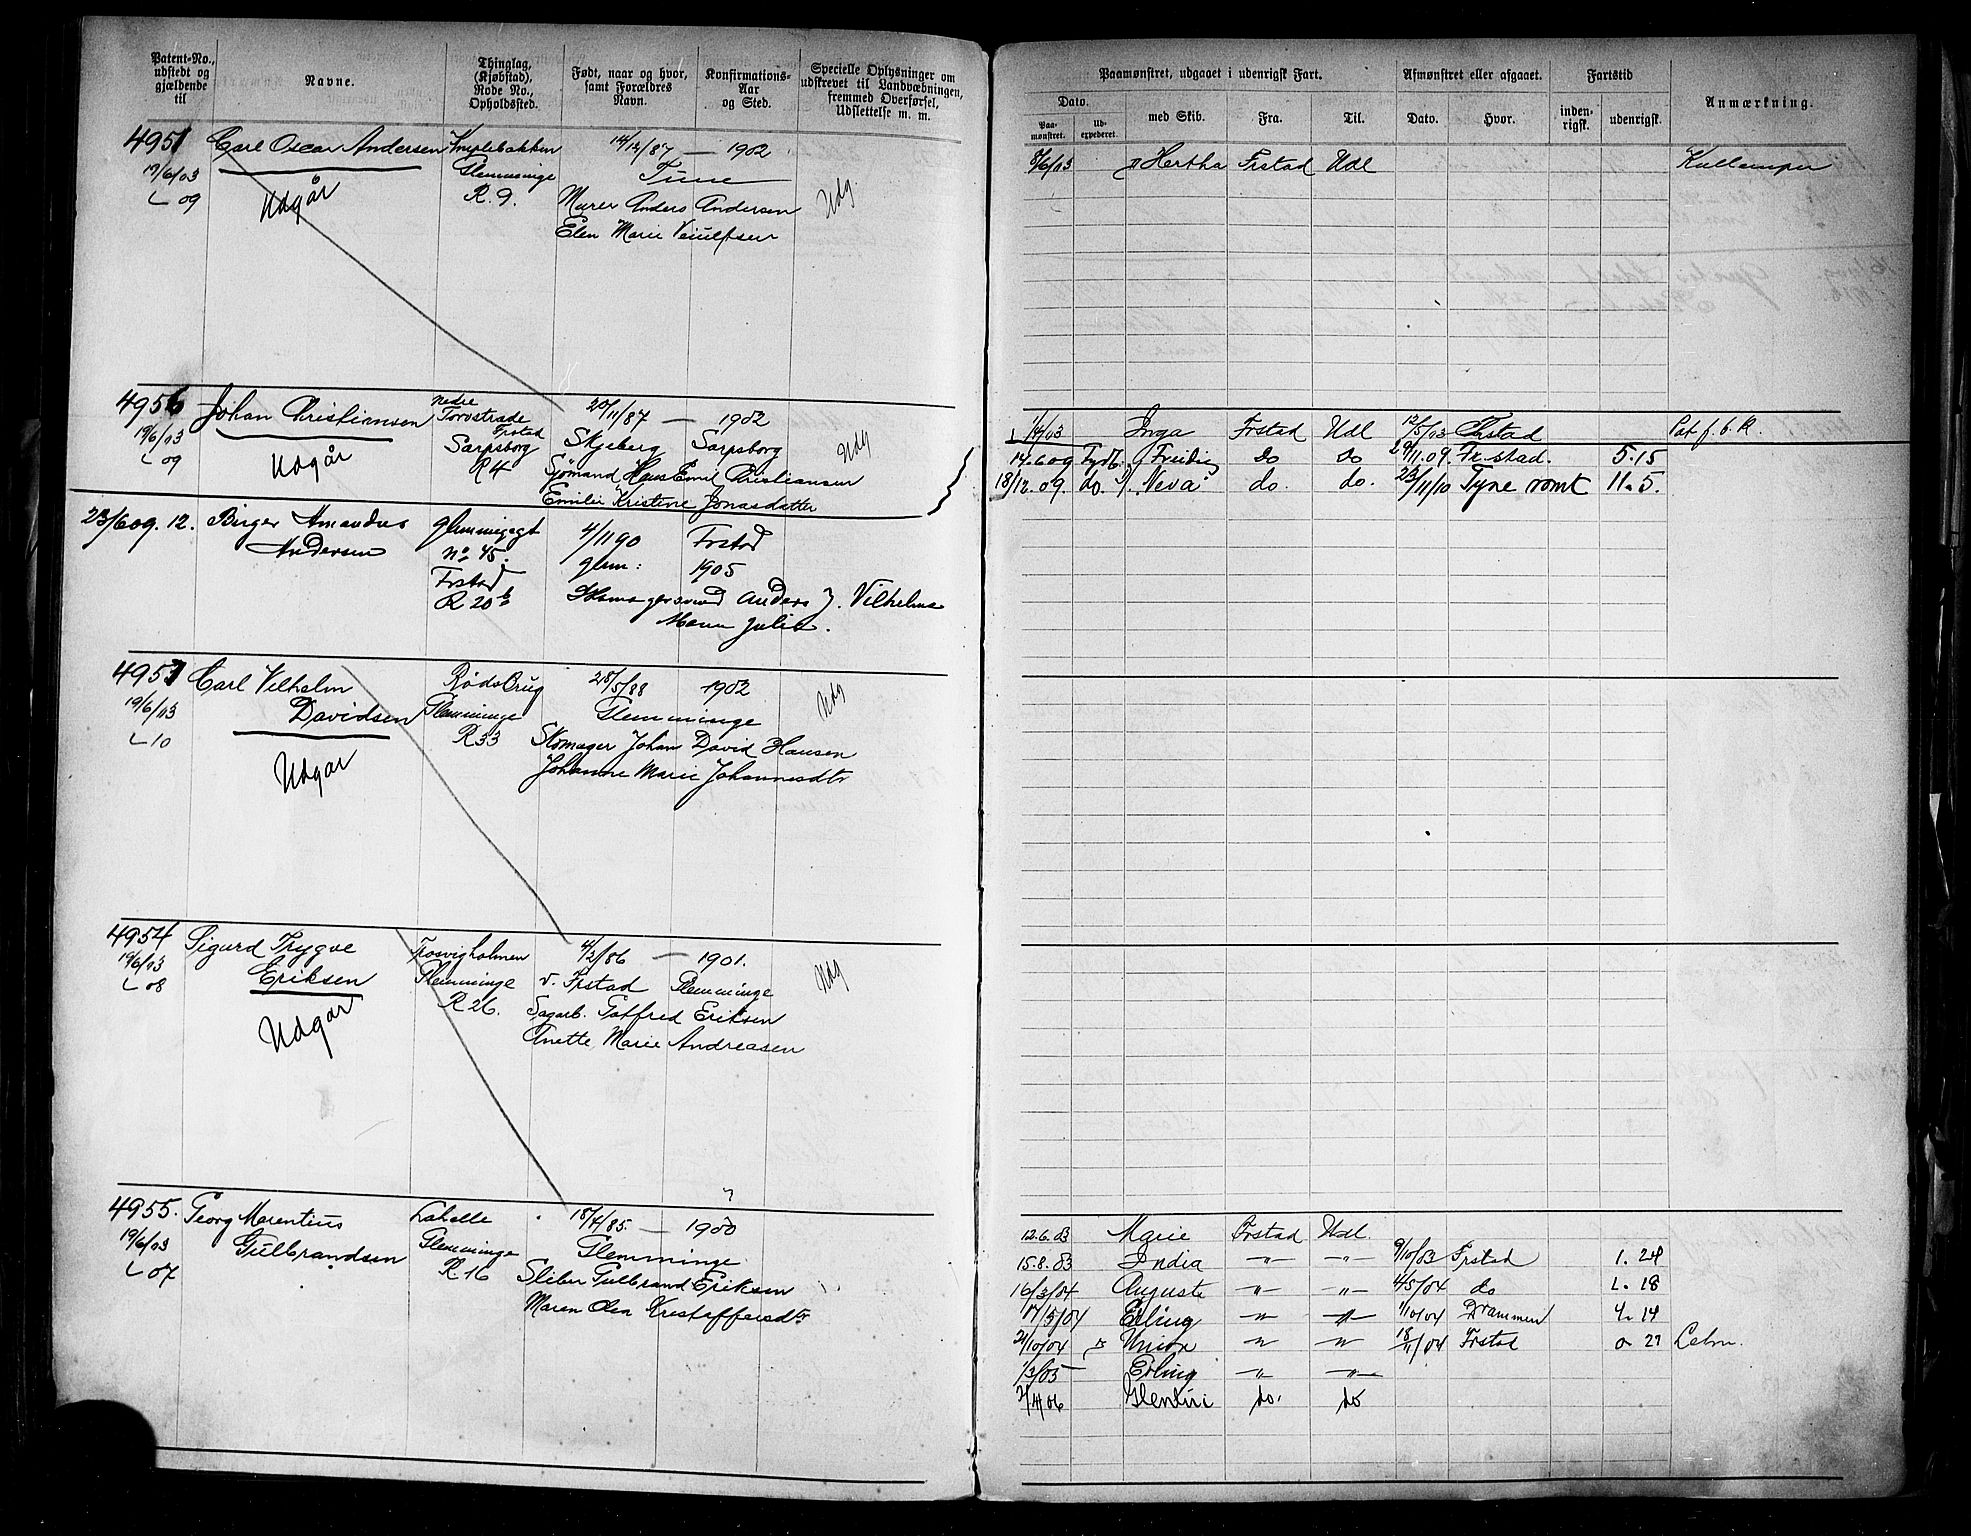 Patent-No., udstedt og gjældende til
Navne.
Thinglag, (Kjøbstad), Rode No., Opholdssted.
Født, naar og hvor, samt Forældres Navn.
Konfirmations-Aar og Sted.
Specielle Oplysninger om udskrevet til Landvæbningen, fremmed Overførsel, Udslettelse m. m.
Paamønstret, udgaaet i udenrigsk Fart.
Afmønstret eller afgaaet.
Fartstid
Anmærkning.
Dato.
Paa-mønstret.
Ud-expederet.
med Skib.
Fra.
Til.
Dato.
Hvor.
inden-rigsk.
udenrigsk.
4951 Carl Oscar Andersen 14/12/87 — 1902
8/6/03 Hertha Frstad Udl
19/6/03 Glemminge Tune
L 09 Udgår R. 9. Murer Anders Andersen Udg.
Elen Marie
4956 Johan Christiansen nedre Torvstrade Frstad 20/11/87 — 1902
1/4/03 Inga Frstad Udl 12/5/03 Frstad
19/6/03 Sarpsborg Skjeberg Sarpsborg Udg
14.6 09 do do 29/11.09. Fr.stad. 5.15
L 09 Udgår R4 Sjömand Hans Emil Christiansen
18/12.09. do. "Neva" do. do. 23/11/10 Tyne 11.5.
Emilie Kristine Jonasdatter
23/6 09. 12. Birger Amandus Andersen No 45. Frstad R 20 b 4/11 90 glem: Frstad 1905
Anders J. Vilhelmsen
Julie.
4953 Carl Vilhelm Davidsen Røds Brug 28/5/88 1902 Udg
19/6/03 Glemminge Glemminge
L 10 R33 Skomager Johan David Hansen
Udgår Johanne Marie Johannesdtr
4954 Sigurd Trygve Eriksen Trosvigholmen 4/2/86 — 1901. Udg
19/6/03 Glemminge v. Frstad Glemminge
L 08 R 26. Sagarb. Gotfred Eriksen
Udgår Anette Marie Andreasen
4955. Georg Marentius Gulbrandsen Lahelle 18/4/85. — 1900
19/6/03 Glemminge Glemminge
L 07 R 16 Sliber Gulbrand Eriksen
Maren Olea Kristoffersdtr
12.6.03 Marie Frstad Udl.
15.8.03 India —"— —"— 9/10/03 Frstad 1. 24
16/3/04 Auguste —"— —"— 4/5/04 do 1. 18
17/5/04 Erling —"— —"— 1/10/04 Drammen 4. 14
21/10/04 Union —"— —"— 18/11/04 Frstad 0. 27
1/3/05 Erling —"— —"—
do. do